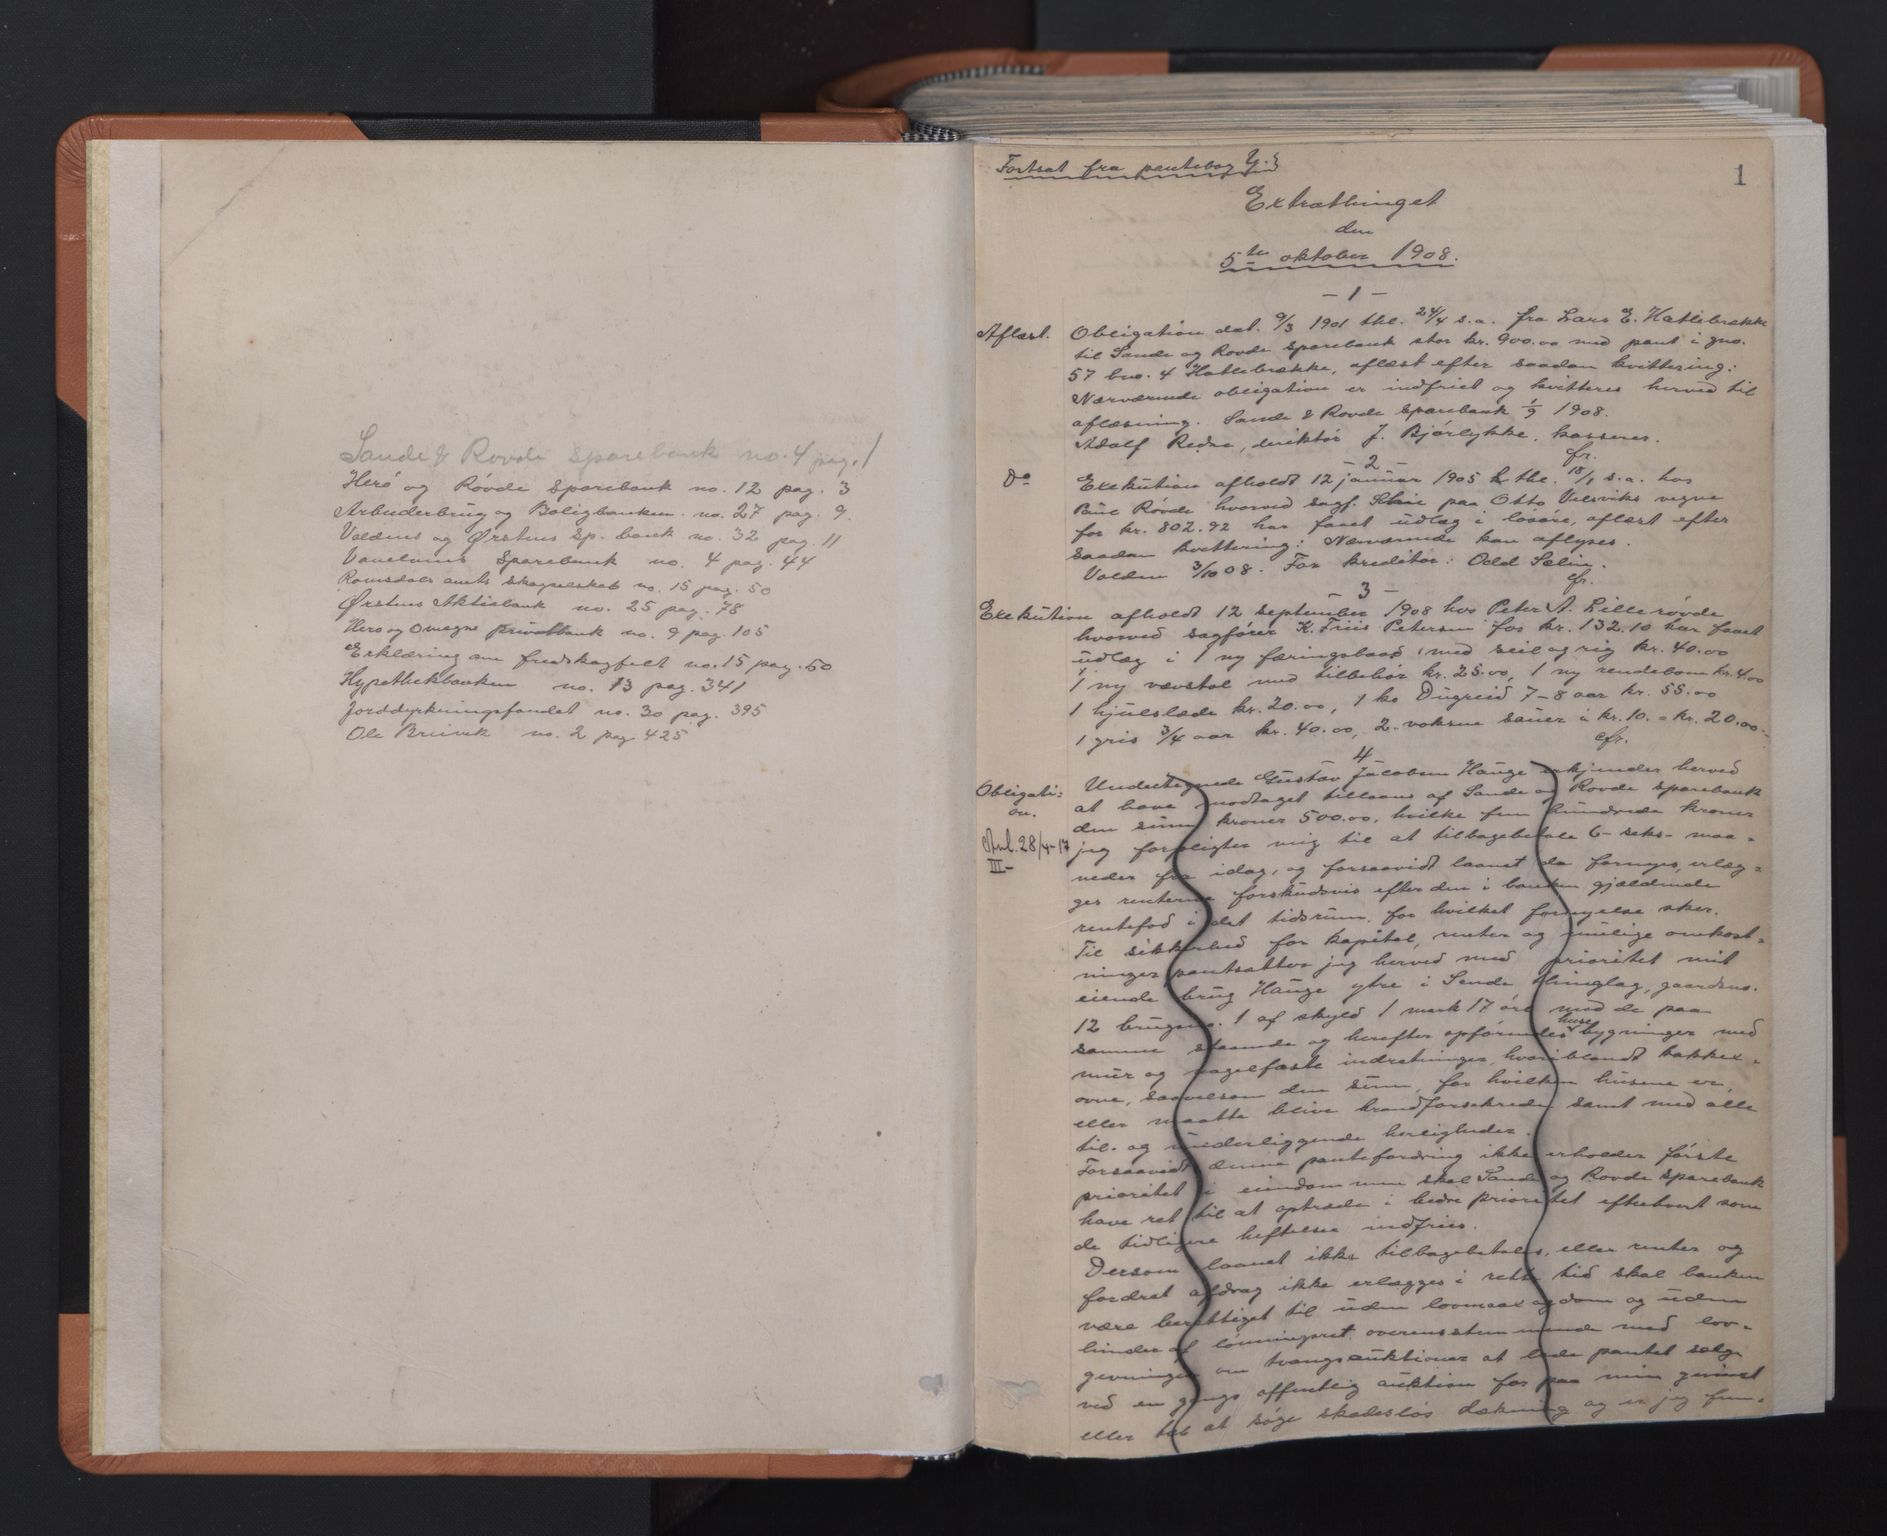 Sande & Rovde Sparebank no. 4 pag. 1
Herø og Røvde Sparebank no. 12 pag. 3
Arbuderbrug og Boligbanken no. 27 pag. 9.
Voldens og Ørstens Sp. bank no. 32 pag. 11
Vanelvens Sparebank no. 4 pag. 44
Romsdals amts skogselskab no. 15 pag. 50
Ørstens Aktiebank no. 25 pag. 78
Herø og omegns privatbank no. 9 pag. 105
Erklæring om fredskogfelt no. 15 pag. 50
Hypothekbanken no. 13 pag. 341
Jorddyrkningsfondet no. 30 pag. 395
Ole Brünk no. 2 pag 425
1
Fortsat fra pantebog
Extrathinget
den
5te oktober 1908.
- 1 -
Aflæst. Obligation dat. 9/3 1901 thl. 24/4 s.a. fra Lars E. Hatlebrække
til Sande og Rovde Sparebank stor kr. 900.00 med pant i gno.
57 bno. 4 Hatlebrække, aflæst efter saadan kvittering:
Nærværende obligation er indfriet og kvitteres herved til
aflæsning. Sande & Rovde Sparebank 1/9 1908.
Adolf Redse, direktør J. Bjørlykke, kasserer.
cfr.
- 2 -
Do Exekution afholdt 12 januar 1905 thl. 18/1 s.a. hos
Paul Røvde hvorved sagf. paa Otto Velsviks vegne
for kr. 802.92 har faaet udlæg i losøre, aflæst efter
saadan kvittering: Nærværende kan aflyses.
Volden 3/10 08. For kreditor: Odd Selin.
cfr.
- 3 -
Exekution afholdt 12 september 1908 hos Peter A. Lillerøvde
hvorved sagfører K. Friis Petersen for kr. 132.10 har faaet
udlæg i 1 ny færingsbaad med seil og rig kr. 40.00
1 ny vævstol med tilbehør kr. 25.00, 1 ny rendebom kr. 4.00
1 hjulslæde kr. 20.00, 1 ko Dugreid 7-8 aar kr. 55.00
1 gris 3/4 aar kr. 40.00, 2 voksne sauer à kr. 10. = kr. 20.00.
cfr.
4
Obligati= Undertegnede Gustav Jacobsen Hauge erkjender herved
on. at have modtaget tillaans af Sande og Rovde Sparebank
den sum kroner 500.00, hvilke fem hundrede kroner
28/4-17 jeg forpligter mig til at tilbagebetale 6- seks- maa=
III- neder fra idag, og forsaavidt laanet da fornyes, erlæg=
ges renterne forskudsvis efter den i banken gjældende
rentefod i det tidsrum, for hvilket fornyelse sker.
Til sikkerhed for kapital, renter og mulige omkost=
ninger pantsætter jeg herved med prioritet mit
eiende brug Hauge ytre i Sande thinglag, gaardsno.
12 brugsno. 1 af skyld 1 mark 17 øre med de paa
samme staaende og herefter opførendes huse bygninger med
mur og nagelfaste indretninger, hvoriblandt kakkel=
ovne, saavelsom den sum, for hvilken husene er,
eller maatte blive brandforsikrede samt med alle
til- og underliggende herligheder.
Forsaavidt denne pantefordring ikke erholder første
prioritet i eiendommen skal Sande og Rovde Sparebank
have ret til at optræde i bedre prioritet efterhvert som
de tidligere heftelser indfries.
Dersom laanet ikke tilbagebetales, eller renter og
fordret afdrag ikke erlægges i rette tid skal banken
være berettiget til uden lovmaal og dom og uden
hinder af løsningsret overensstemmende med lov=
givningen om tvangsauktioner at lade pantet sælge
ved en gangs offentlig auktion for paa min gevinst
eller tab at søge skadesløs dækning og er jeg fun=